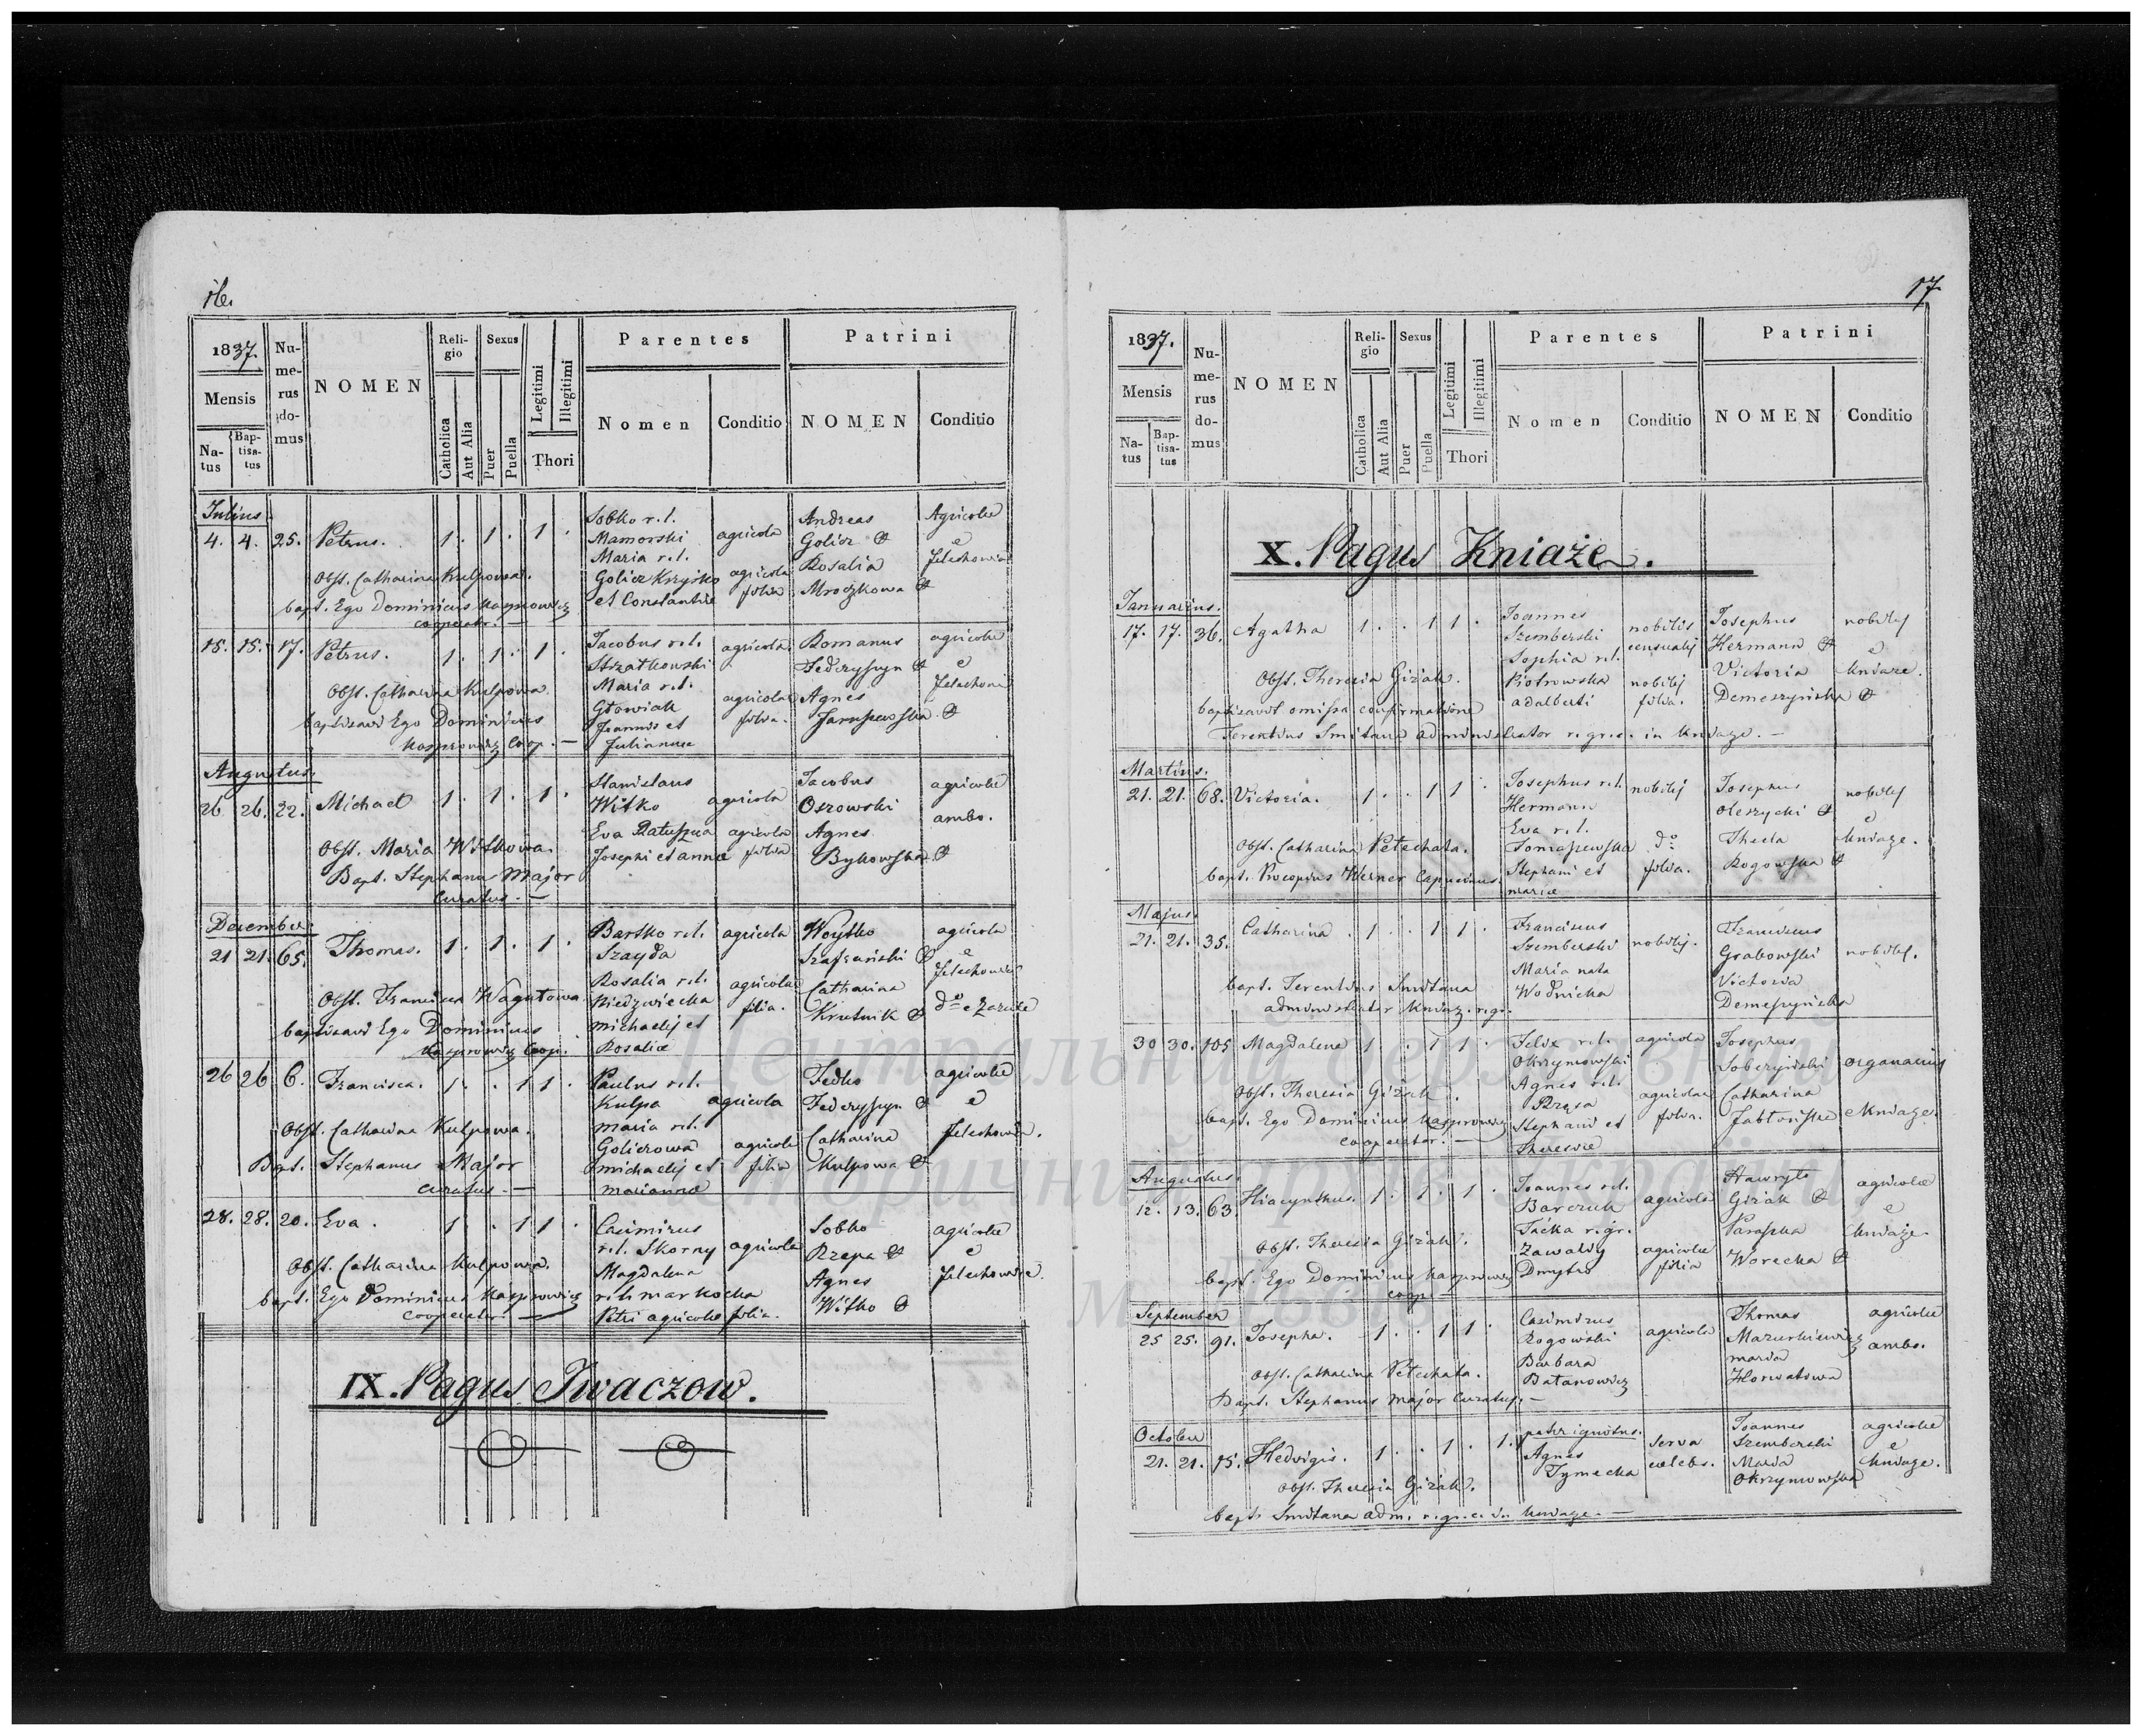 16.
1837.
Mensis
Na-
tus
Bap-
tisa-
tus
Nu-
me-
rus
do-
mus
NOMEN
Reli-
gio
Catholica
Aut Alia
Sexus
Puer
Puella
Legitimi
Illegitimi
Thori
Parentes
Nomen
Conditio
Patrini
NOMEN
Conditio
Julius
4. 4. 25. Petrus. 1. 1. 1.
Sobko r.l.
Mamorski
Maria r.l.
Golicz Krzysko
et Constantiae
agricola
agricolae
filia
Andreas
Golicz
Rosalia
Mroczkowa
Agricolae
e
Jelechowie
Obst. Catharina Kulpowa.
bapt. Ego Dominicus Kasprowicz
cooperator. —
15. 15. 17. Petrus. 1. 1. 1.
Jacobus r.l.
Strzatkowski
Maria r.l.
Głowiak
Joannis et
Julianna
agricola
agricolae
filia.
Romanus
Federyszyn
Agnes
agricolae
e
Obst. Catharina Kulpowa
baptizavi Ego Dominicus
Kasprowicz Coop. —
Augustus.
26 26. 22. Michael 1. 1. 1.
Stanislaus
Witko
Eva Ratuszna
Josephi et Annae
agricola
agricolae
filia
Jacobus
Osowski
Agnes
Bykowska
agricolae
ambo.
Obst. Maria Witkowa.
Bapt. Stephanus Major
Curatus. —
December
21 21. 65. Thomas. 1. 1. 1.
Bartko r.l.
Szayda
Rosalia r.l.
Niedzwiecka
Michaelis et
Rosaliae
agricola
agricolae
filia.
Woytko
Szafrański
Catharina
Krutnik
agricola
e
Jelechowie
Obst. Francisca
baptizavi Ego Dominicus
Kasprowicz Coop.
26 26 6. Francisca. 1. . 1 1.
Paulus r.l.
Kulpa
Maria r.l.
Goliczowa
Michaelis et
Mariannae
agricola
agricolae
filia
Fedko
Federyszyn
Catharina
Kulpowa
agricolae
e
Jelechowie.
Obst. Catharina Kulpowa.
Bapt. Stephanus Major
Curatus. —
28. 28. 20. Eva. 1. . 1 1.
Casimirus
r.l. Skorny
Magdalena
r.l. Markocka
Petri agricolae filia.
agricola
Sobko
Rzepa
Agnes
Witko
agricolae
e
Jelechowie.
Obst. Catharina Kulpowa.
bapt. Ego Dominicus Kasprowicz
cooperator. —
IX. Pagus Iwaczow.
17.
1837.
Mensis
Na-
tus
Bap-
tisa-
tus
Nu-
me-
rus
do-
mus
NOMEN
Reli-
gio
Catholica
Aut Alia
Sexus
Puer
Puella
Legitimi
Illegitimi
Thori
Parentes
Nomen
Conditio
Patrini
NOMEN
Conditio
X. Pagus Kniaże.
Januarius.
17. 17. 36. Agatha 1. . 1 1.
Joannes
Szemberski
Sophia r.l.
Piotrowska
Adalberti
nobilis
censualis
nobilis
filia.
Josephus
Hermann
Victoria
Demeszyńska
nobiles
e
Kniaze.
Obst. Theresia Giżak.
baptizavit omissa confirmatione
Terentius Smitana administrator r.gr.c. in Kniaze. —
Martius.
21. 21. 68. Victoria. 1. . 1 1.
Josephus r.l.
Hermann
Eva r.l.
Tomaszewska
Stephani et
Mariae
nobilis
do
filia.
Josephus
Oleszycki
Thecla
Rogowska
nobiles
e
Kniaze.
Obst. Catharina Petechata.
bapt. Procopius Werner Capucinus.
Majus.
21. 21. 35. Catharina. 1. . 1 1.
Franciscus
Szemberski
Maria nata
Wodnicka
nobilis.
Franciscus
Grabowski
Victoria
Demeszyńska
nobiles.
bapt. Terentius Smitana
administrator Kniaz. r.gr.
30 30. 105 Magdalena 1. . 1 1.
Felix r.l.
Okrzymowski
Agnes r.l.
Stephani et
Theresiae
agricola
agricolae
filia.
Josephus
Soborzyński
Catharina
Jabłońska
organarius
e Kniaze.
Obst. Theresia Giżak.
bapt. Ego Dominicus Kasprowicz
cooperator. —
Augustus.
12. 13. 63. Hiacynthus. 1. 1. 1.
Joannes r.l.
Barczuk
Jaćka r.gr.
Zawaldy
Dmytro
agricola
agricolae
filia
Hawryło
Giżak
Paraska
Worecka
agricolae
e
Kniaże.
Obst. Theresia Giżak.
bapt. Ego Dominicus Kasprowicz
coop.
September
25 25. 91. Josepha. 1. . 1 1.
Casimirus
Rogowski
Barbara
Batanowicz
agricola
Thomas
Mazurkiewicz
Maria
Horwatowa
agricolae
ambo.
Obst. Catharina Petechata.
Bapt. Stephanus Major Curatus. —
October
21. 21. 15. Hedvigis. 1. . 1. 1.
pater ignotus.
Agnes
Tymecka
serva
celebs.
Joannes
Szemberski
Maria
Okrzymowska
agricolae
e
Kniaze.
Obst. Theresia Giżak.
bapt. Smitana adm. r.gr.c. in Kniaze. —
Центральний державний
історичний архів України
м. Львів